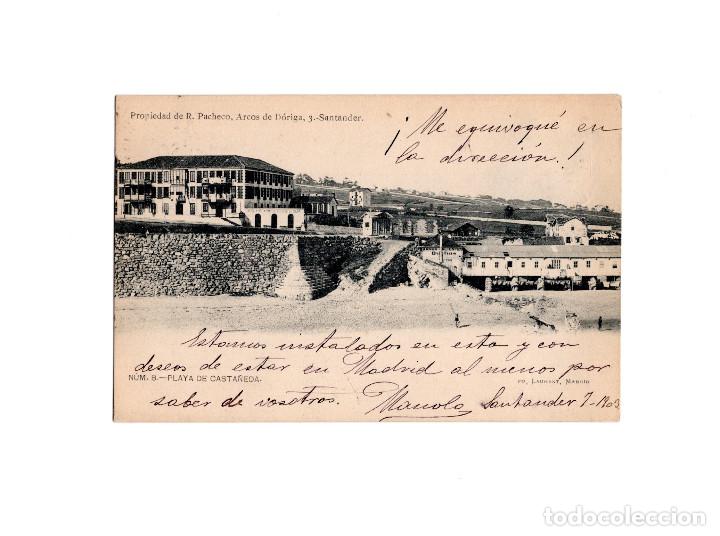 Propiedad de R. Pacheco, Arcos de Dóriga, 3.-Santander.
¡Me equivoqué en
la dirección!
Estamos instalados en esta y con
deseos de estar en Madrid al menos por
NÚM. 8.—PLAYA DE CASTAÑEDA.
FO, LAURENT, MADRID
saber de vosotros. Manolo Santander 7-1903
todocoleccion.net